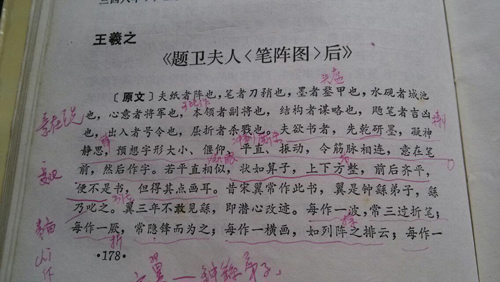 王羲之
《题卫夫人〈笔阵图〉后》
〔原文〕夫纸者阵也，笔者刀鞘也，墨者鍪甲也，水砚者城池
也，心意者将军也，本领者副将也，结构者谋略也，飏笔者吉凶
也，出入者号令也，屈折者杀戮也。夫欲书者，先乾研墨，凝神
静思，预想字形大小、偃仰、平直、振动，令筋脉相连，意在笔
前，然后作字。若平直相似，状如算子，上下方整，前后齐平，
便不是书，但得其点画耳。昔宋翼常作此书，翼是钟繇弟子，繇
乃叱之。翼三年不敢见繇，即潜心改迹。每作一波，常三过折笔；
每作一㇏，常隐锋而为之；每作一横画，如列阵之排云；每作一
·178·
头盔
意在先
折
翼—钟繇弟子